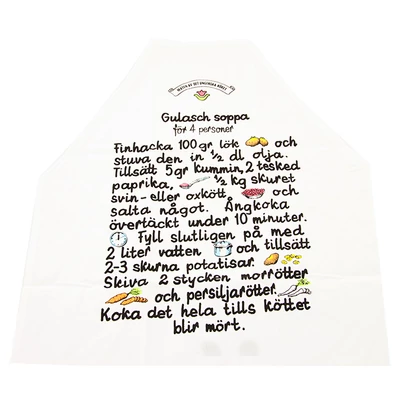 Gulasch soppa
för 4 personer
Finhacka 100 gr lök och
stuva den in ½ dl olja.
Tillsätt 5gr kummin, 2 tesked
paprika, ½ kg skuret
svin- eller oxkött och
salta något. Ångkoka
övertäckt under 10 minuter.
Fyll slutligen på med
2 liter vatten och tillsätt
2-3 skurna potatisar.
Skiva 2 stycken morrötter
och persiljarötter.
Koka det hela tills köttet
blir mört.